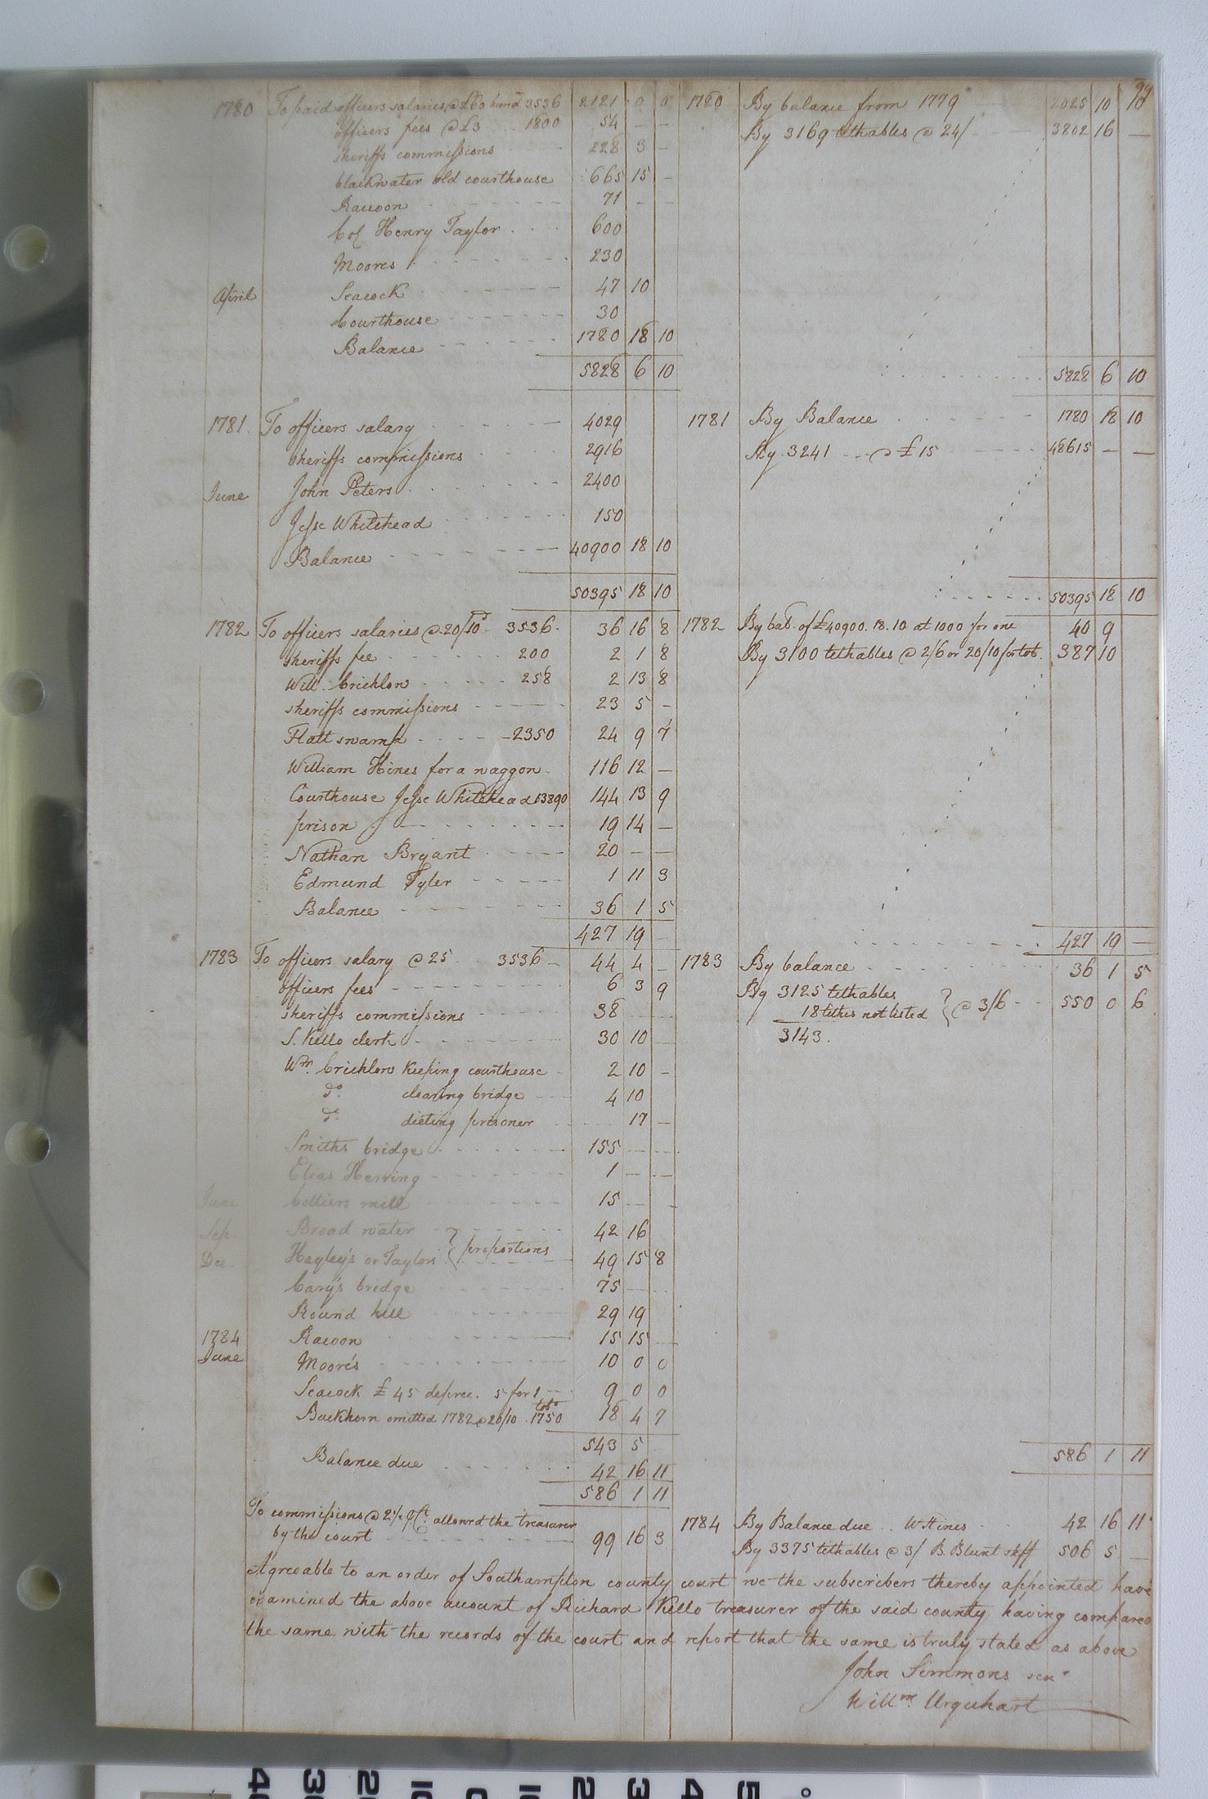 99
1780 To paid officers salaries @ £60 hund 3536 2121 0 0 1780 By balance from 1779 2025 10 10
officers fees @ £3 1800 54 - - By 3169 tithables @ 24/ 3802 16 -
sheriffs commissions 228 3 -
blackwater old courthouse 665 15 -
Racoon 71 - -
Col Henry Taylor 600
Moores 230
April Seacock 47 10
Courthouse 30
Balance 1780 18 10
5828 6 10 5828 6 10
1781 To officers salary 4029 1781 By Balance 1780 18 10
sheriffs commissions 2916 By 3241 @ £15 48615 - -
June John Peters 2400
Jesse Whitehead 150
Balance 40900 18 10
50395 18 10 50395 18 10
1782 To officers salaries @ 20/10d 3536 36 16 8 1782 By bal. of £40900.18.10 at 1000 for one 40 9
sheriffs fee 200 2 1 8 By 3100 tithables @ 2/6 or 20/10 for tob. 387 10
Will. Crichlow 258 2 13 8
sheriffs commissions 23 5 -
Flatt swamp 2350 24 9 7
William Hines for a waggon 116 12 -
Courthouse Jesse Whitehead 13890 144 13 9
prison 19 14 -
Nathan Bryant 20 - -
Edmund Tyler 1 11 3
Balance 36 1 5
427 19 - 427 19 -
1783 To officers salary @ 25 3536 44 4 - 1783 By balance 36 1 5
officers fees 6 3 9 By 3125 tithables
sheriffs commissions 38 18 tithes not listed } @ 3/6 550 0 6
S. Kello clerk 30 10 - 3143
Wm. Crichlow keeping courthouse 2 10 -
Do. clearing bridge 4 10
Do. dieting prisoner 17 -
Smiths bridge 155 - -
Elias Herring 1 - -
June Colliers mill 15 - -
Sep. Broad water 42 16
Dec Hayley's or Taylors } proportions 49 15 8
Cary's bridge 75 -
Round hill 29 19
1784 Racoon 15 15 -
June Moore's 10 0 0
Seacock £45 deprec. 5 for 1 9 0 0
Buckhorn omitted 1782 @ 20/10 tobo 1750 18 4 7
543 5 586 1 11
Balance due 42 16 11
586 1 11
To commissions @ 2½ pCt. allowed the treasurer 1784 By Balance due W Hines 42 16 11
by the court 99 16 3 By 3375 tithables @ 3/ B. Blunt shff 506 5 -
Agreeable to an order of Southampton county court we the subscribers thereby appointed have
examined the above account of Richard Kello treasurer of the said county having compared
the same with the records of the court and report that the same is truly stated as above
John Simmons senr
Willm. Urquhart
40 30 20 10 0 10 2 3 4 5